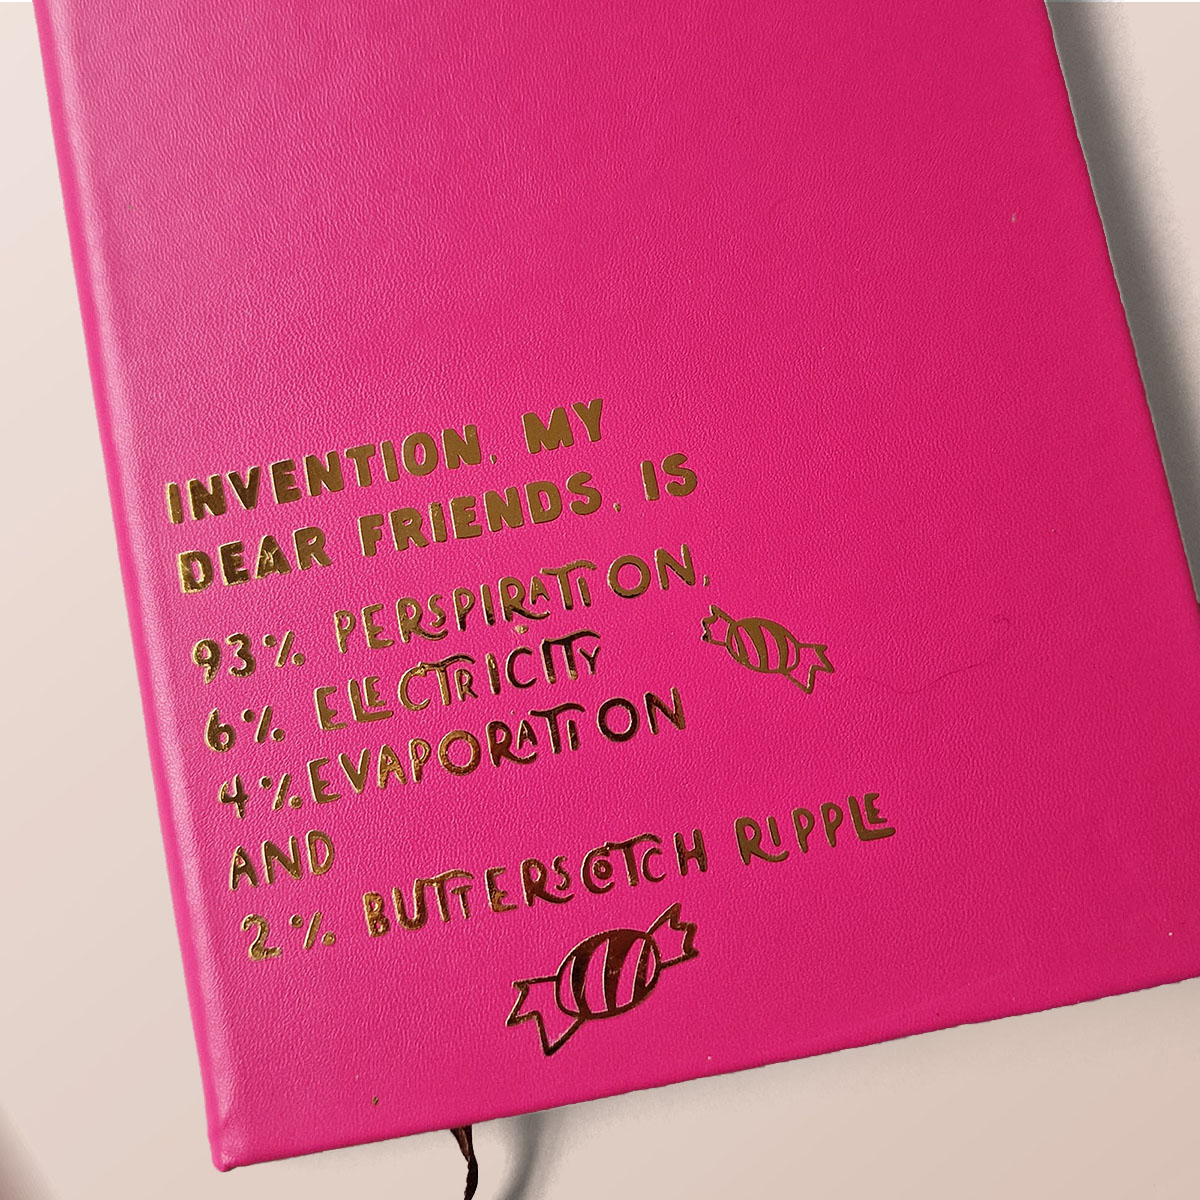 INVENTION, MY
DEAR FRIENDS, IS
93% PERSPIRATION,
6% ELECTRICITY
4% EVAPORATION
AND
2% BUTTERSCOTCH RIPPLE